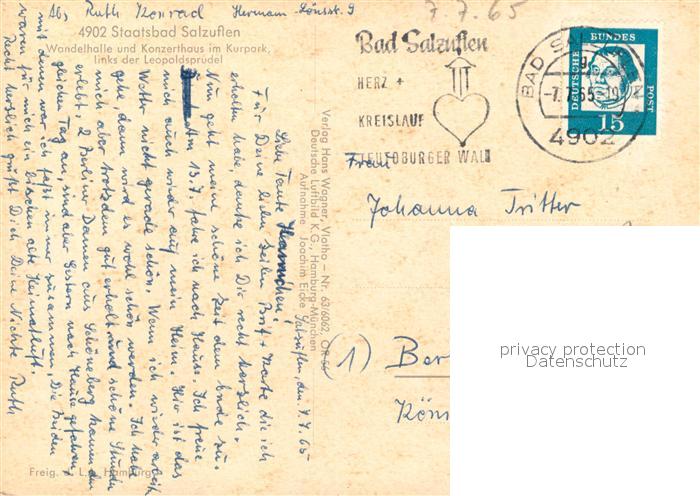 Abs. Ruth Konrad Hermann-Lönsstr. 9
7.7.65
4902 Staatsbad Salzuflen
Wandelhalle und Konzerthaus im Kurpark,
links der Leopoldsprudel
Bad Salzuflen
HERZ +
KREISLAUF
TEUTOBURGER WALD
BAD SAL
-7.7.65-19
4902
DEUTSCHE BUNDES POST
15
Frau
Johanna Tritter
(1) Ber
Kön
privacy protection
Datenschutz
Verlag Hans Wagner, Vlotho – Nr. 63/6062
Deutsche Luftbild K.G., Hamburg-München
Aufnahme Joachim Eicke
Freig. d. L. Hamburg
Salzuflen, den 7.7.65
Liebe Tante Hannchen!
Für Deine lieben Zeilen Brf + Karte die ich
erhalten habe, danke ich Dir recht herzlich.
Nun geht meine schöne Zeit dem Ende zu.
Am 13.7. fahre ich nach Hause. Ich freue
mich auch wieder auf mein Heim. Hier ist das
Wetter nicht gerade schön. Wenn ich wieder arbeiten
gehe, dann wird es wohl schön werden. Ich habe
mich aber trotzdem gut erholt und schöne Stunden
erlebt. 2 Berliner Damen aus Schöneberg kamen den
gleichen Tag an, sind aber Gestern nach Hause gefahren,
mit denen war ich fast immer zusammen. Die Beiden
waren für mich ein bischen alte Heimatluft.
Recht herzlich grüßt Dich Deine Nichte Ruth